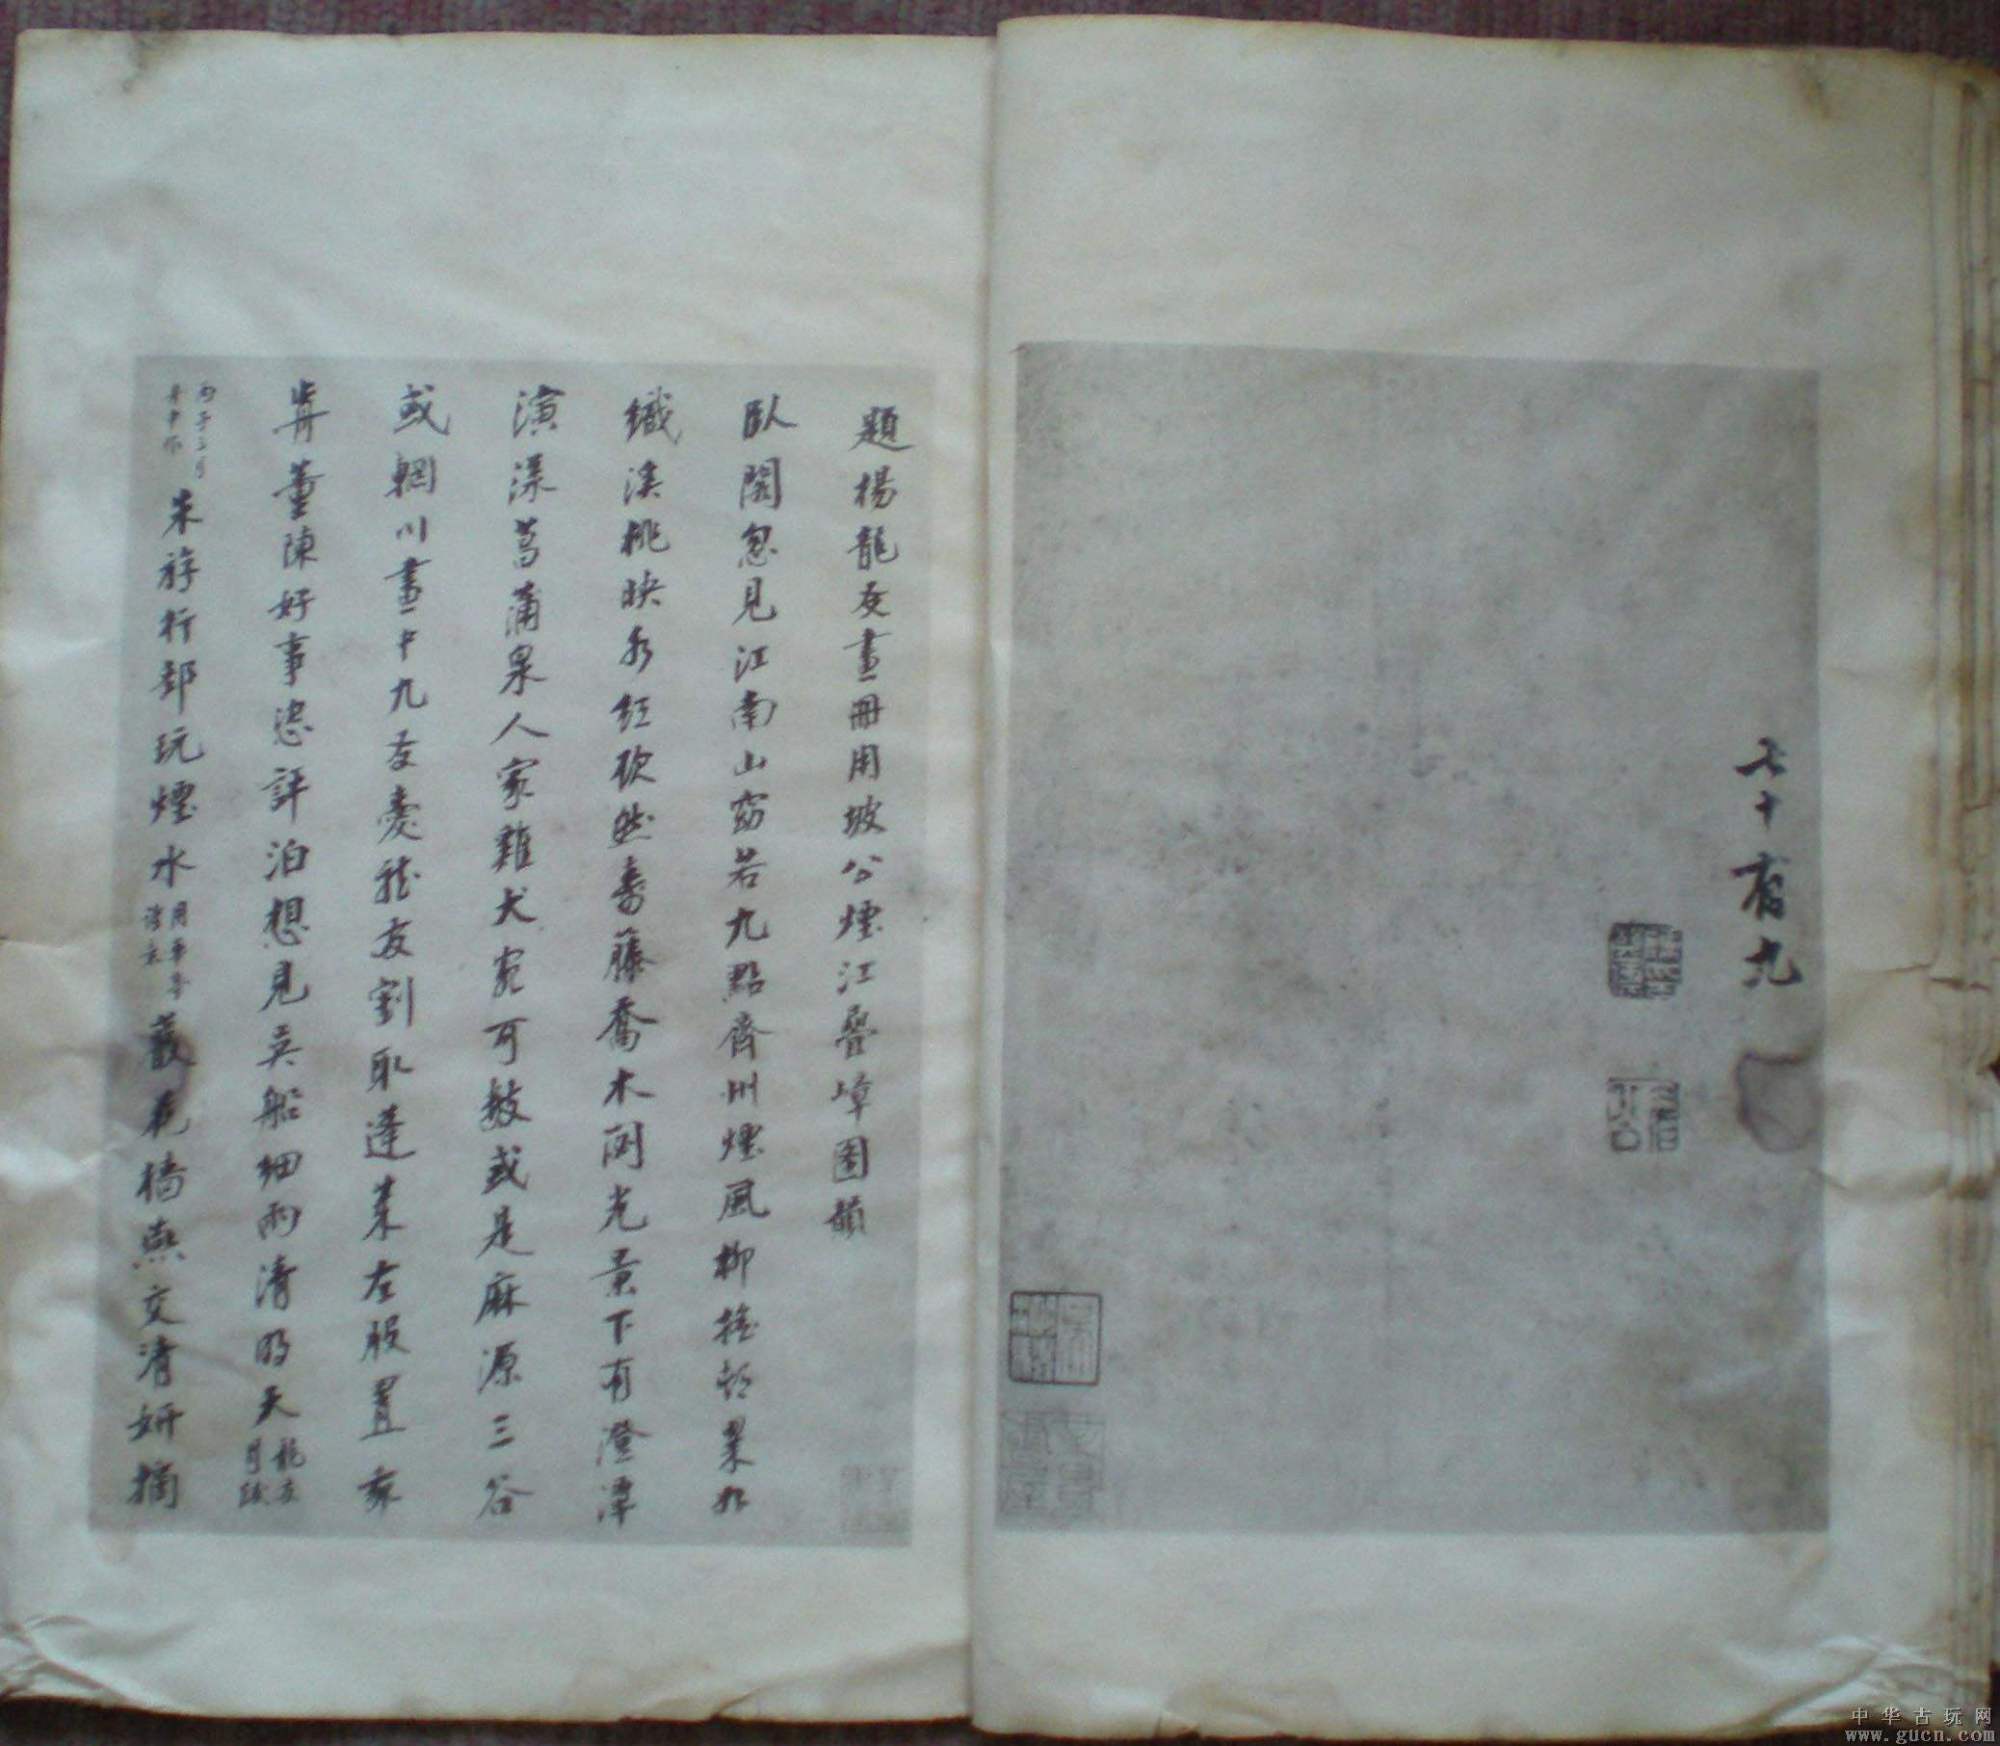 七十有九
題楊龍友畫冊用坡公煙江疊嶂圖韻
臥閣忽見江南山窈若九點齊州煙風柳搖
織溪桃映水紅欲然壽藤喬木閟光景下有澄潭
演漾菖蒲泉人家雞犬宛可數或是麻源三谷
或輞川畫中九友愛龍友割取蓬萊左股置我
前董陳好事恣評泊想見吳船細雨清明天
龍友自跋
丙子三月
舟中作
來游行部玩煙水
觀花檣燕交清妍摘
中华古玩网
www.gucn.com